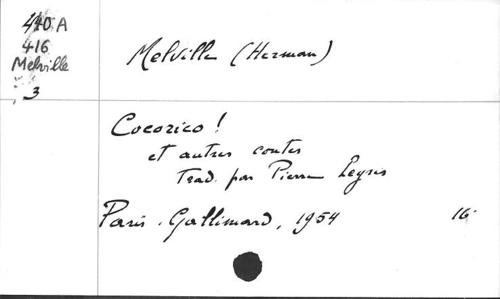 440 A
416
Melville
3
Melville (Herman)
Cocorico !
et autres contes
Trad. par Pierre Leyris
Paris. Gallimard, 1954 16°